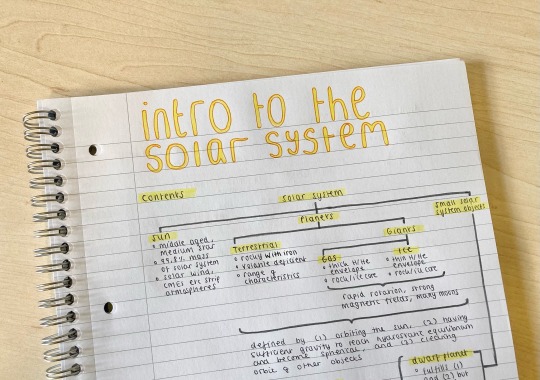 intro to the
solar system
contents
solar system
small solar
system objects
planets
sun
middle aged,
medium star
99.8% mass
of solar system
solar wind,
CMEs etc strip
atmospheres
Terrestrial
rocky with iron
volatile deficient
range of
characteristics
Giants
Gas
thick H/He
envelope
rock/ice core
Ice
thin H/He
envelope
rock/ice core
rapid rotation, strong
magnetic fields, many moons
defined by (1) orbiting the sun, (2) having
sufficient gravity to reach hydrostatic equilibrium
and become spherical, and (3) clearing
orbit of other objects
dwarf planet
fulfills (1)
and (2) but